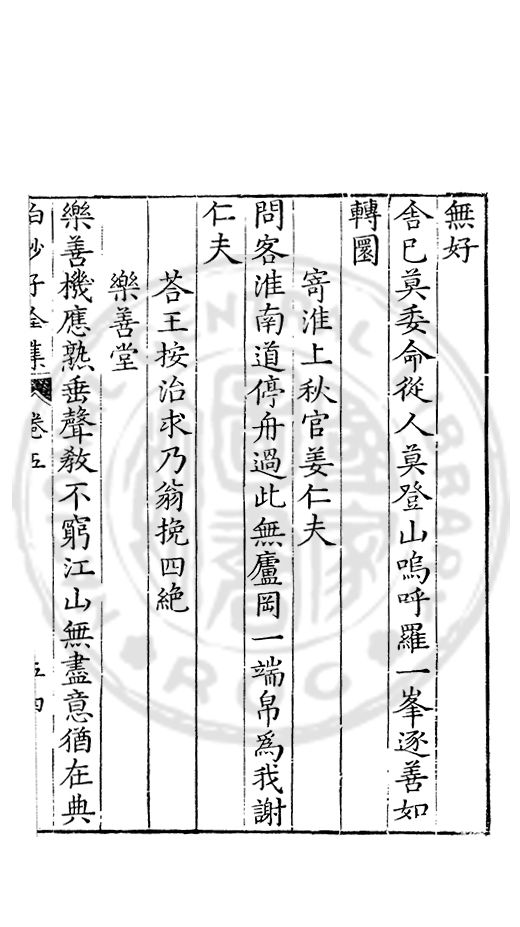 無好
舍已莫委命從人莫登山嗚呼羅一峯逐善如
轉圜
寄淮上秋官姜仁夫
問客淮南道停舟過此無廬岡一端帛爲我謝
仁夫
荅王按治求乃翁挽四絶
樂善堂
樂善機應熟垂聲教不窮江山無盡意猶在典
白沙子全集 卷五